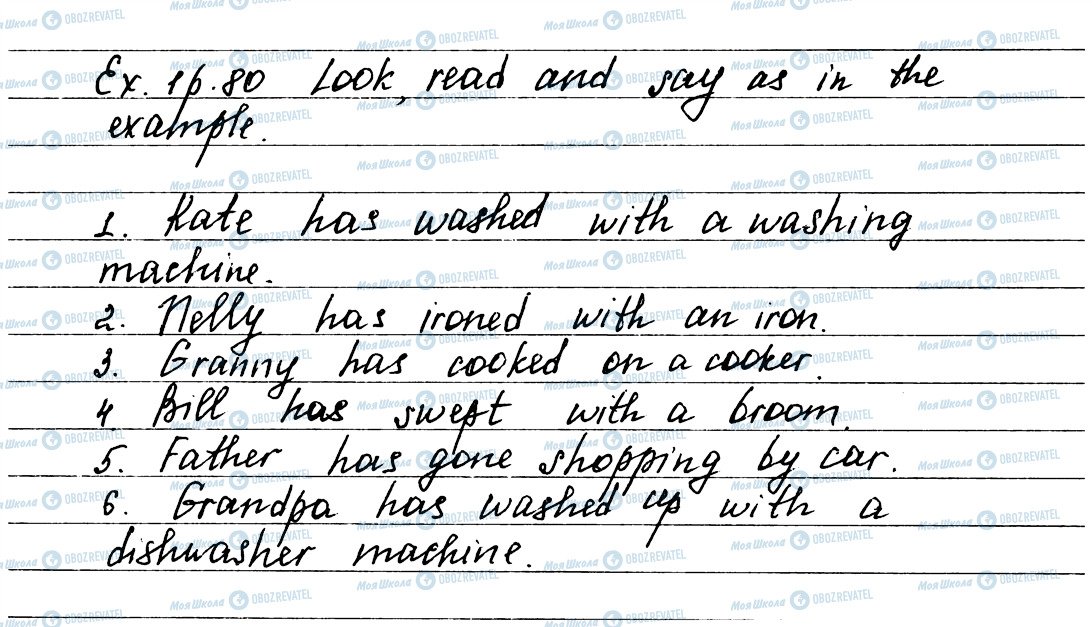 Ex. 1 p. 80 Look, read and say as in the
example.
1. Kate has washed with a washing
machine.
2. Nelly has ironed with an iron.
3. Granny has cooked on a cooker.
4. Bill has swept with a broom.
5. Father has gone shopping by car.
6. Grandpa has washed up with a
dishwasher machine.